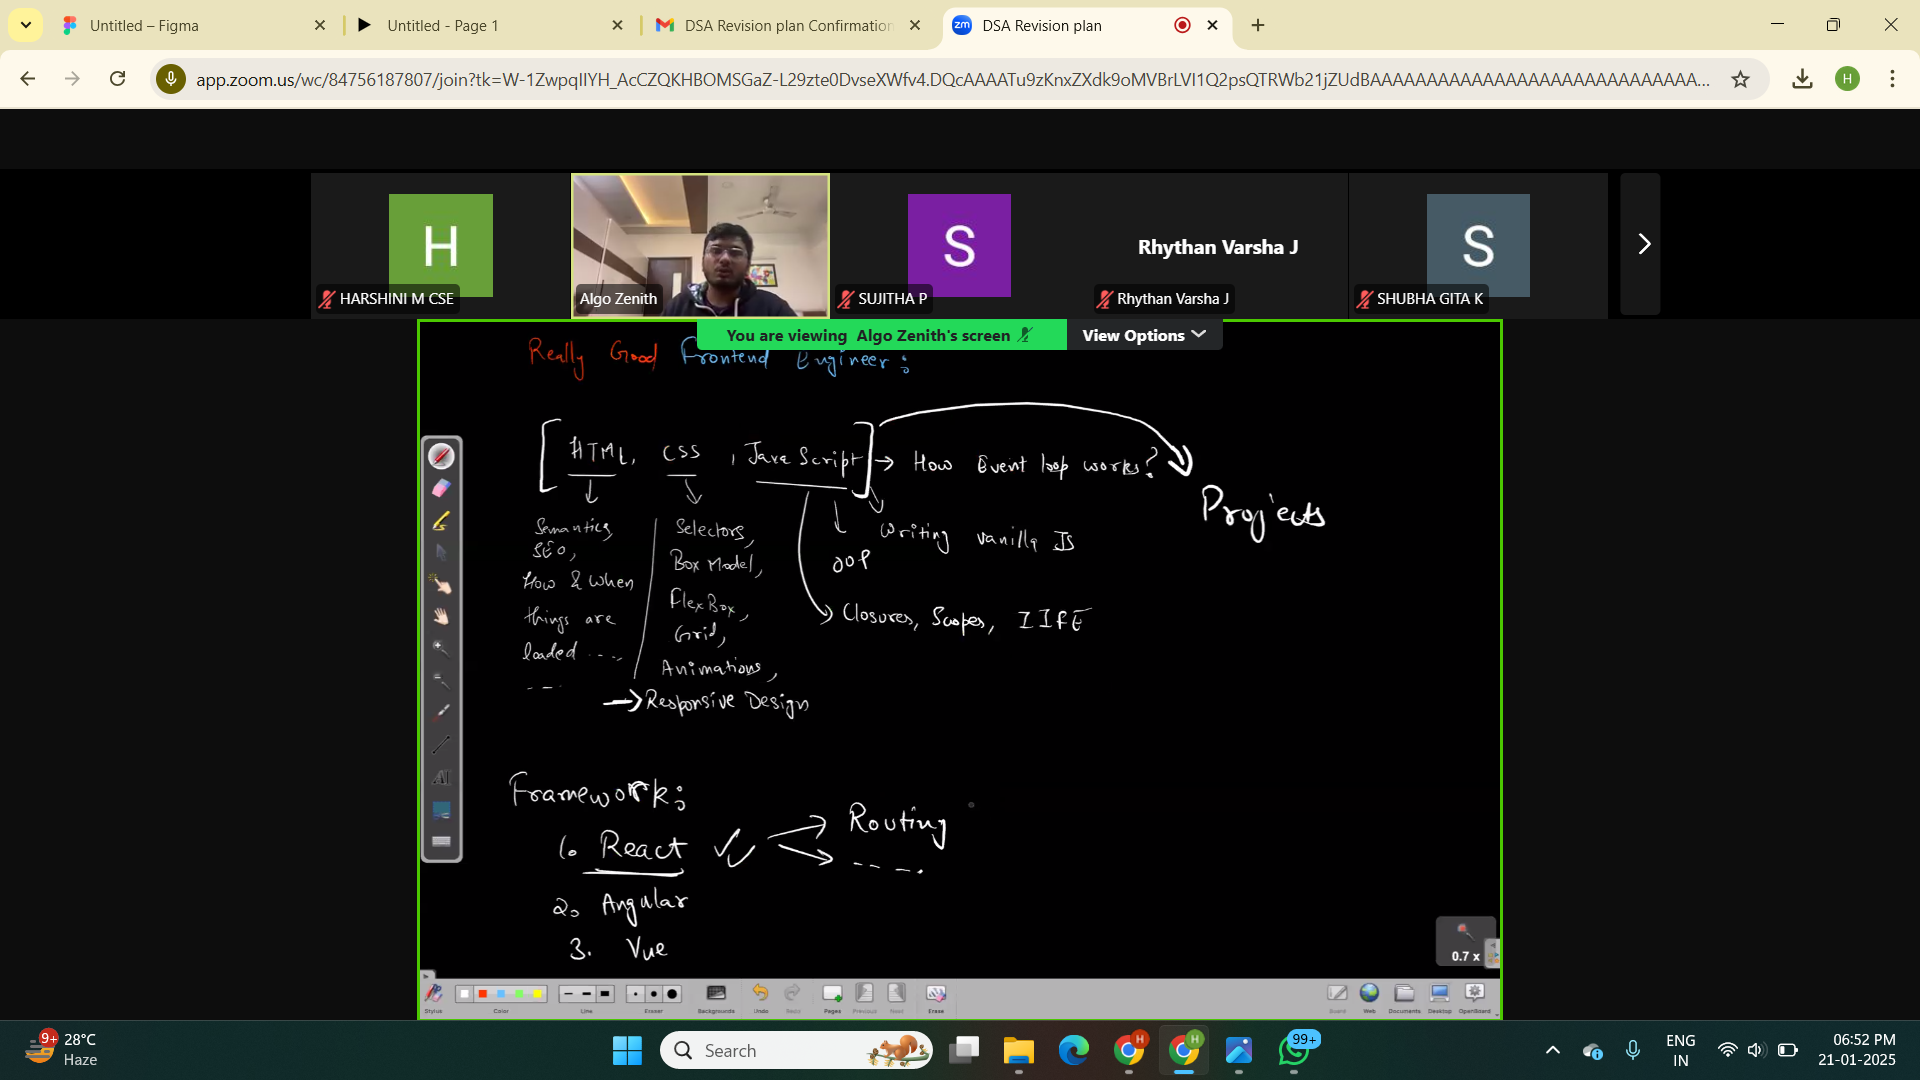 Untitled – Figma
Untitled - Page 1
DSA Revision plan Confirmation
DSA Revision plan
app.zoom.us/wc/84756187807/join?tk=W-1ZwpqIIYH_AcCZQKHBOMSGaZ-L29zte0DvseXWfv4.DQcAAAATu9zKnxZXdk9oMVBrLVI1Q2psQTRWb21jZUdBAAAAAAAAAAAAAAAAAAAAAAAAAAAA...
H
H
HARSHINI M CSE
Algo Zenith
S
SUJITHA P
Rhythan Varsha J
Rhythan Varsha J
S
SHUBHA GITA K
You are viewing Algo Zenith's screen
View Options
Really Good Frontend Engineer:
[HTML, CSS, JavaScript] → How Event loop works?
Projects
Semantics,
SEO,
How & When
things are
loaded ----,
----
Selectors,
Box Model,
FlexBox,
Grid,
Animations,
→ Responsive Design
OOP
Writing vanilla JS
Closures, Scopes, IIFE
Framework:
1. React
Routing
----.
2. Angular
3. Vue
0.7 x
Stylus
Color
Line
Eraser
Backgrounds
Undo
Redo
Pages
Previous
Next
Erase
Board
Web
Documents
Desktop
OpenBoard
9+
28°C
Haze
Search
H
H
99+
ENG
IN
06:52 PM
21-01-2025